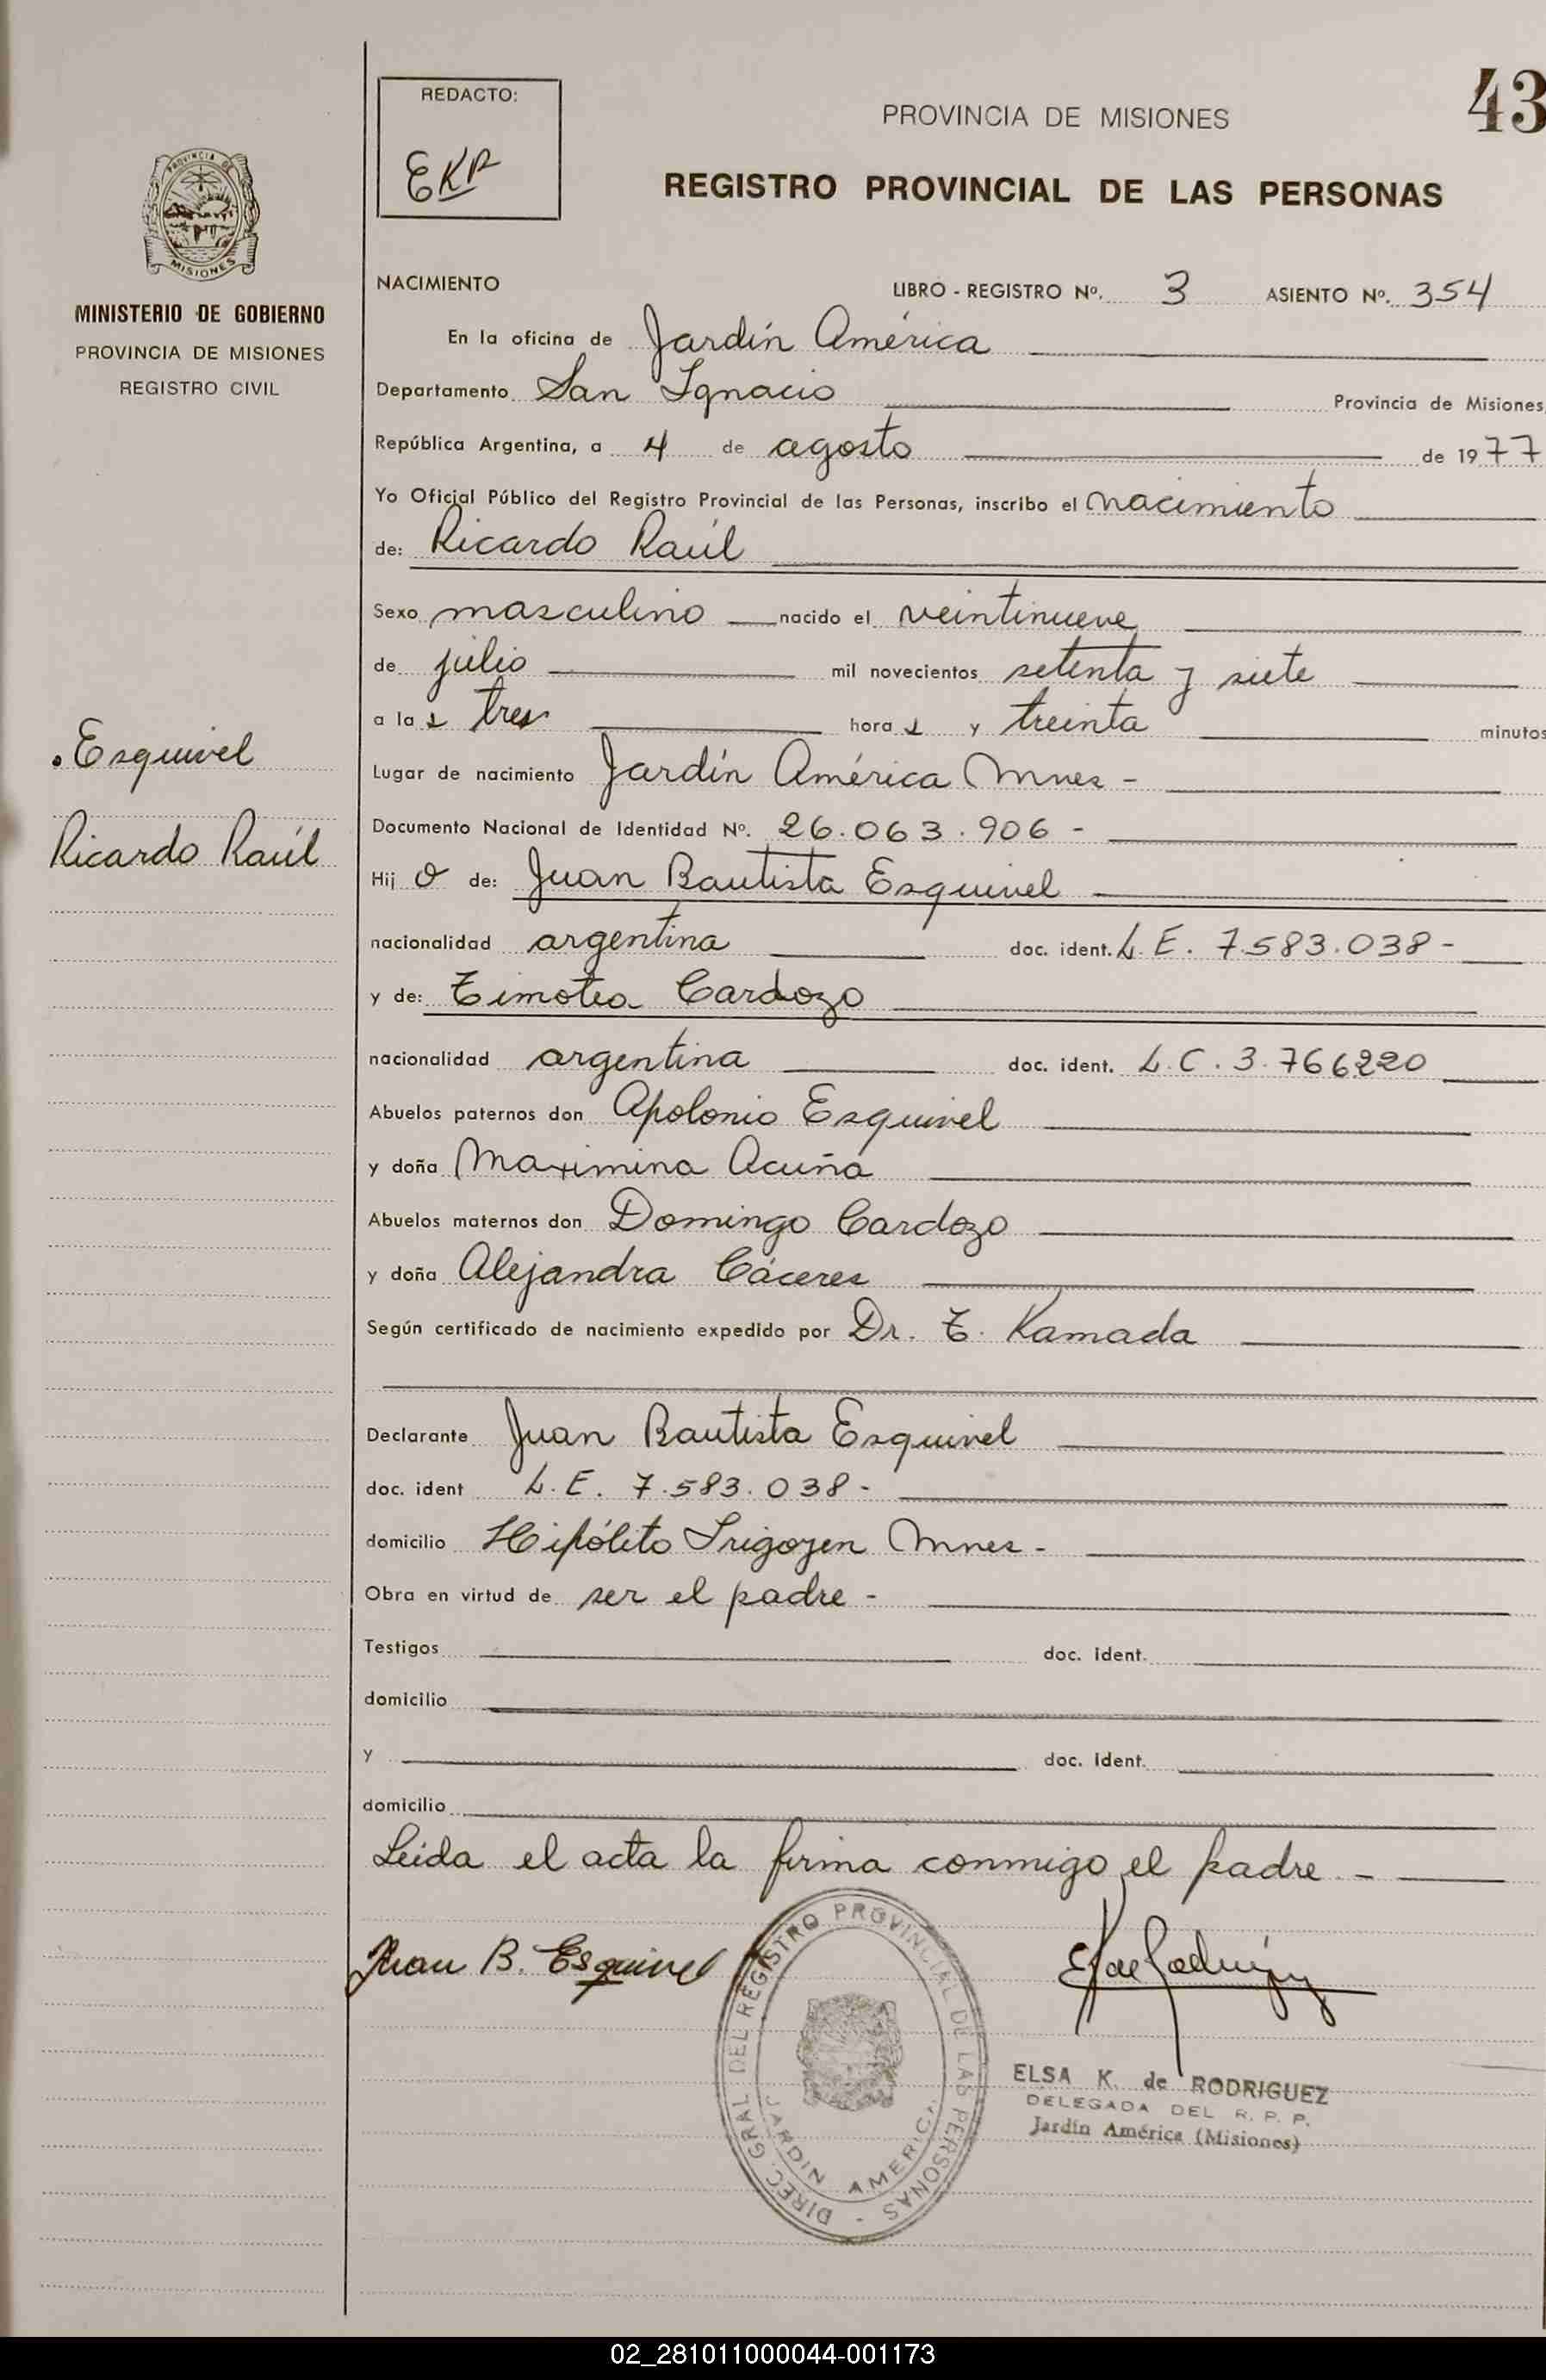 43
REDACTO:
EKR
PROVINCIA DE MISIONES
REGISTRO PROVINCIAL DE LAS PERSONAS
PROVINCIA DE
MISIONES
MINISTERIO DE GOBIERNO
PROVINCIA DE MISIONES
REGISTRO CIVIL
Esquivel
Ricardo Raúl
NACIMIENTO
LIBRO - REGISTRO Nº. 3 ASIENTO Nº. 354
En la oficina de Jardín América
Departamento San Ignacio Provincia de Misiones,
República Argentina, a 4 de agosto de 1977
Yo Oficial Público del Registro Provincial de las Personas, inscribo el nacimiento
de: Ricardo Raúl
Sexo masculino nacido el veintinueve
de julio mil novecientos setenta y siete
a las tres horas y treinta minutos
Lugar de nacimiento Jardín América Mnes -
Documento Nacional de Identidad Nº. 26.063.906 -
Hijo de: Juan Bautista Esquivel
nacionalidad argentina doc. ident. L.E. 7.583.038 -
y de: Timotea Cardozo
nacionalidad argentina doc. ident. L.C. 3.766220
Abuelos paternos don Apolonio Esquivel
y doña Maximina Acuña
Abuelos maternos don Domingo Cardozo
y doña Alejandra Cáceres
Según certificado de nacimiento expedido por Dr. T. Kamada
Declarante Juan Bautista Esquivel
doc. ident L.E. 7.583.038 -
domicilio Hipólito Irigoyen Mnes -
Obra en virtud de ser el padre -
Testigos doc. ident.
domicilio
y doc. ident.
domicilio
Leída el acta la firma conmigo el padre -
Juan B. Esquivel
DIREC. GRAL DEL REGISTRO PROVINCIAL DE LAS PERSONAS -
JARDIN AMERICA
ELSA K. de RODRIGUEZ
DELEGADA DEL R. P. P.
Jardín América (Misiones)
02_281011000044-001173